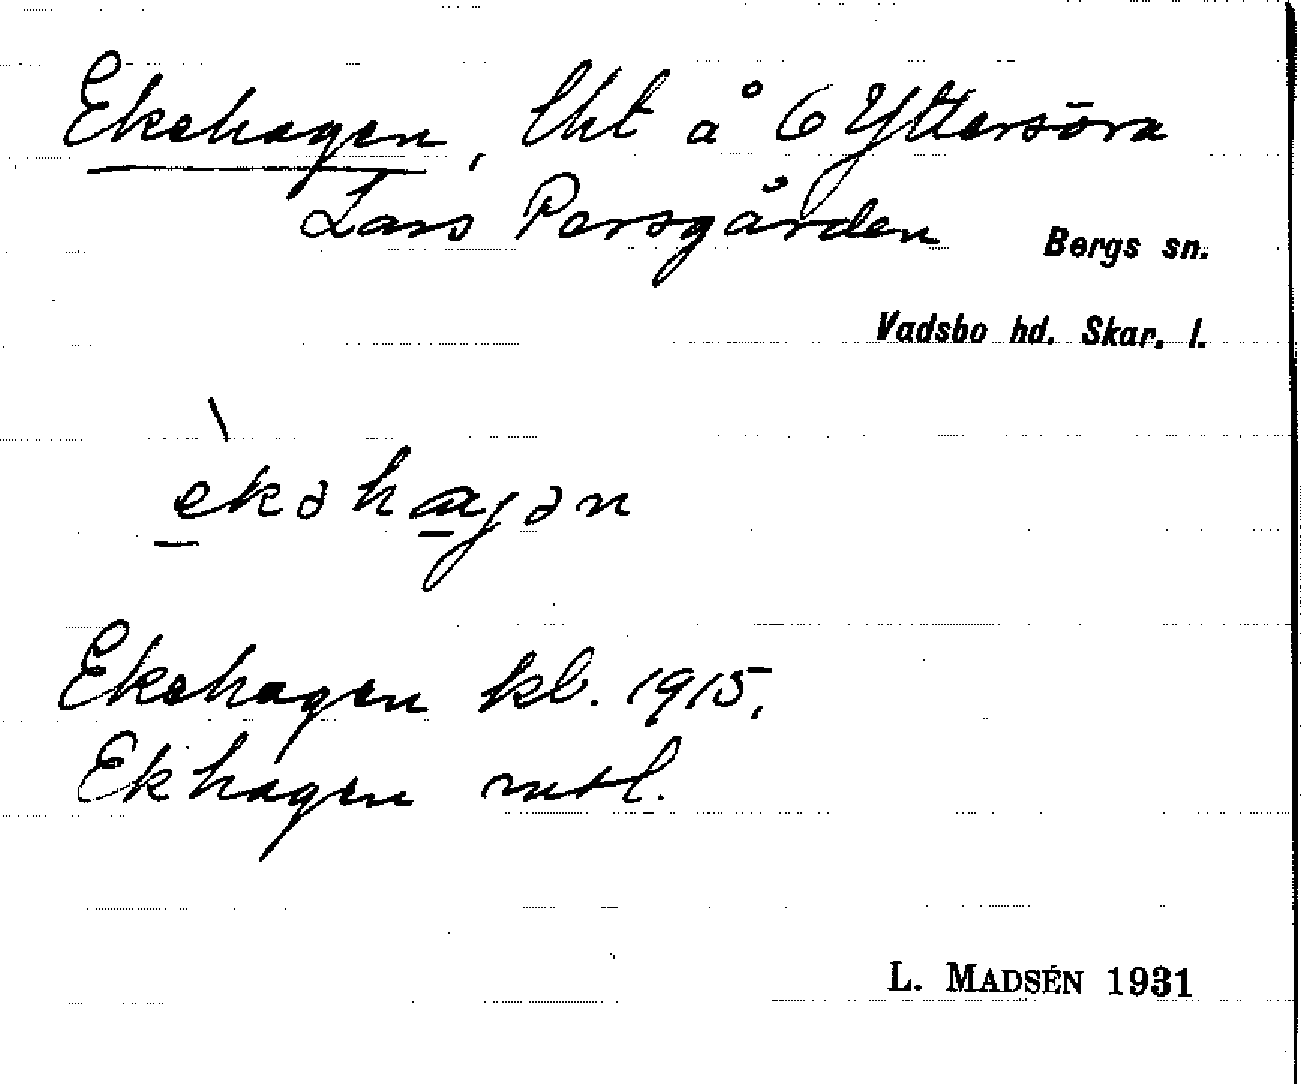 Ekehagen, lht å 6 Yttersöra
Lars Persgården
Bergs sn.
Vadsbo hd. Skar. l.
èkəhagən
Ekehagen kb. 1915,
Ekhagen mtl.
L. MADSÉN 1931